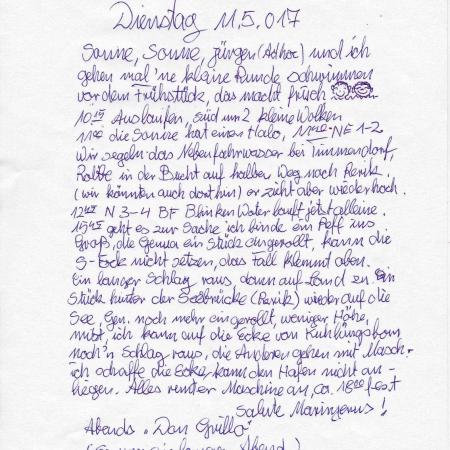 Dienstag 11.5.017
Sonne, Sonne, Jürgen (Adhoc) und ich
gehen mal 'ne kleine Runde schwimmen
vor dem Frühstück, das macht frisch
10 15 Auslaufen, sind um 2 kleine Wolken
11 00 die Sonne hat einen Halo, NE 1-2
Wir segeln das Nebenfahrwasser bei Timmendorf,
Robbe in der Bucht auf halber Weg nach Rerik.
(wir könnten auch dorthin) er zieht aber wieder hoch.
N 3-4 BF Blinken Water läuft jetzt alleine.
geht es zur Sache ich binde ein Reff ins
Groß, die Genua ein Stück eingerollt, kann die
S-Ecke nicht setzen, das Fall klemmt oben.
Ein langer Schlag raus, dann auf Land zu. Ein
Stück hinter der Seebrücke (Rerik) wieder auf die
See, Gen. noch mehr eingerollt, weniger Höhe,
mist, ich kann auf die Ecke von Kühlungsborn
noch'n Schlag raus, die Anderen gehen mit Masch.
ich schaffe die Ecke, kann den Hafen nicht an-
liegen. Alles unter Maschine an, ca. 18 00 fest
Salute
Abends "Don Grillo"